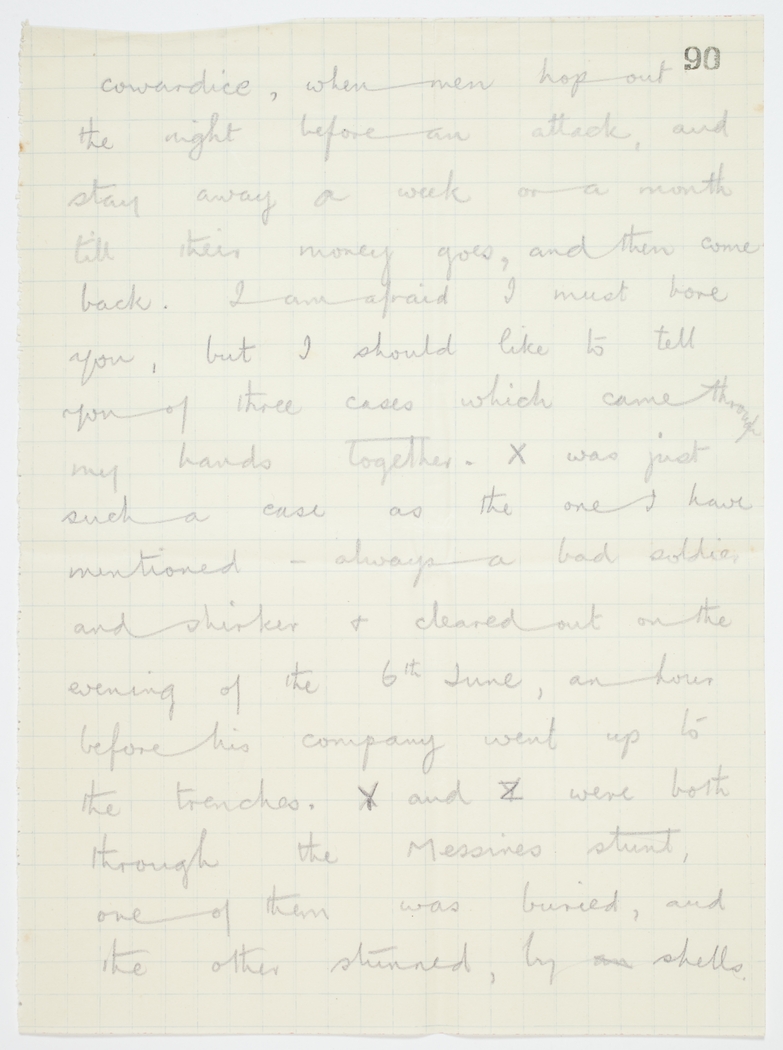 90
cowardice, when men hop out
the night before an attack, and
stay away a week or a month
till their money goes, and then come
back. I am afraid I must bore
you, but I should like to tell
you of three cases which came through
my hands together. X was just
such a case as the one I have
mentioned - always a bad soldier
and shirker & cleared out on the
evening of the 6th June, an hour
before his company went up to
the trenches. Y and Z were both
through the Messines stunt,
one of them was buried, and
the other stunned, by an shells.